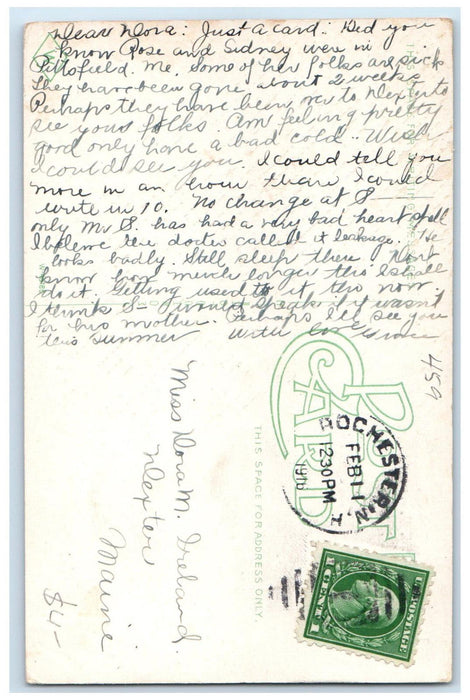 Dear Dora: Just a card: Did you
know Rose and Sidney were in
Pittsfield. Me. Some of her folks are sick
They have been gone about 2 weeks.
Perhaps they have been over to Dexter to
see your folks. Am feeling pretty
good only have a bad cold. Wish
I could see you. I could tell you
more in an hour than I could
write in 10. No change at S—
only Mr S. has had a very bad heart spell
I believe the doctor called it leakage. He
looks badly. Still sleep there Dont
know how much longer tho I shall
do it. Getting used to it tho now.
I think S— would speak if it wasn't
for his mother. Perhaps I'll see you
this summer With love
459
POST
CARD
THIS SPACE FOR ADDRESS ONLY.
ROCHESTER, N.
FEB 11
12 30 PM
Miss Dora M. Ireland.
Dexter
Maine
$4-
U.S. POSTAGE
1 CENT 1